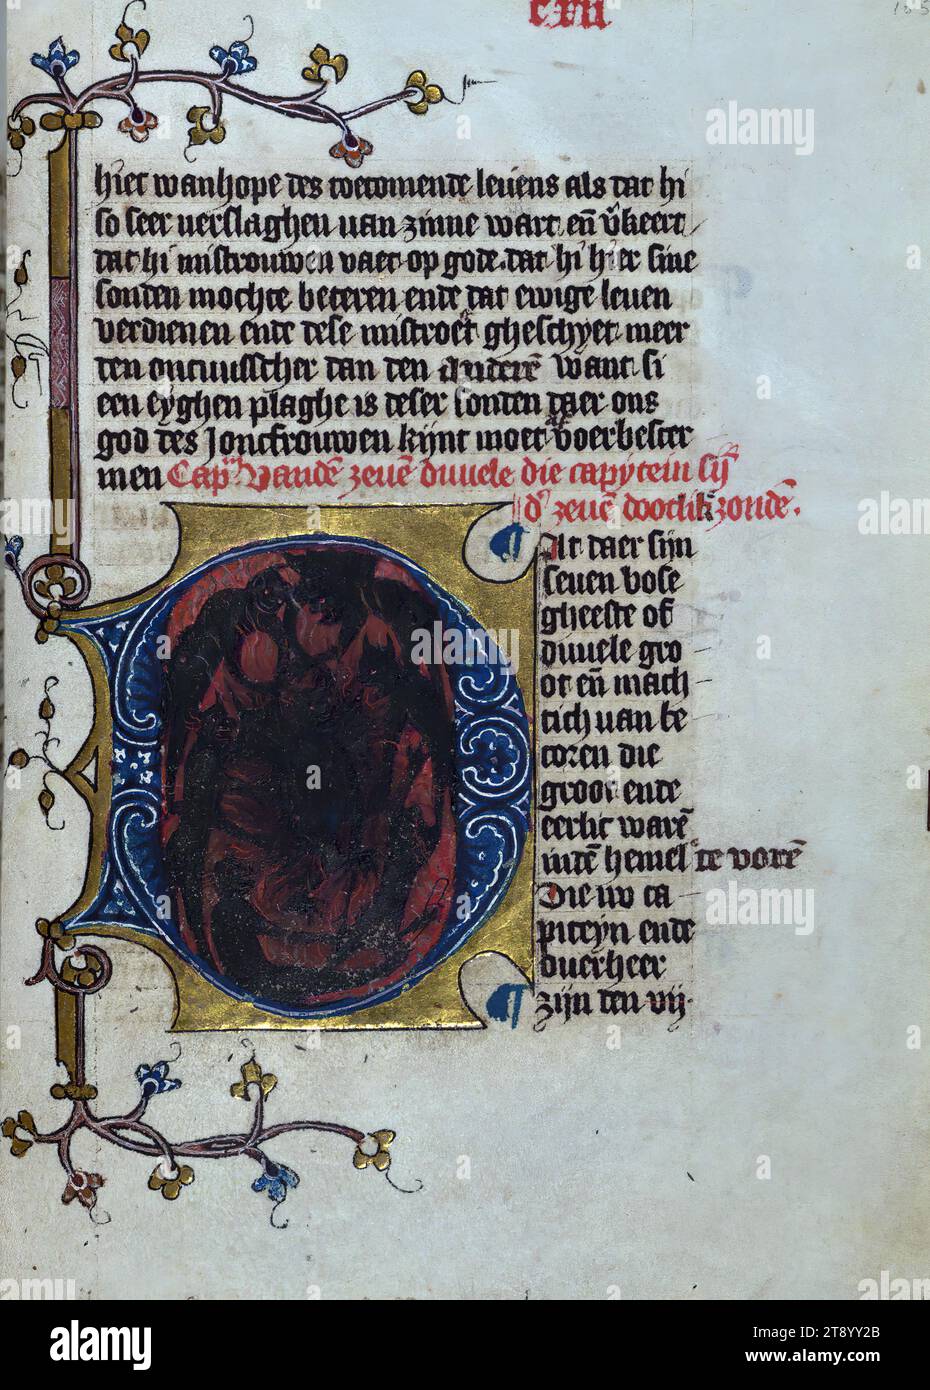 cxvii
hier wanhope des toecomende leuens als dat hi
so seer verslaghen van zinne wart en̄ v̄keert
dat hi mistrouwen vaet op gode. dat hi hier sine
sonden mochte beteren ende dat ewige leuen
verdienen ende dese mistroest gheschyet meer
den dan den anderē want si
een eyghen plaghe is deser sonden daer ons
god des Joncfrouwen kijnt moet af voerbescer
men Cap. Vandē zeuē duuele die capytein sij̄
d' zeuē dootlik' zondē.
¶ At daer sijn
seuen bose
gheeste of
duuele gro
ot en̄ mach
tich van be
coren die
groot ende
eerlic warē
indē hemel te vorē
Die nv ca
piteyn ende
ouerheer
¶ zijn den vij.
alamy
a
alamy
Image ID: 2T8YY2B
www.alamy.com